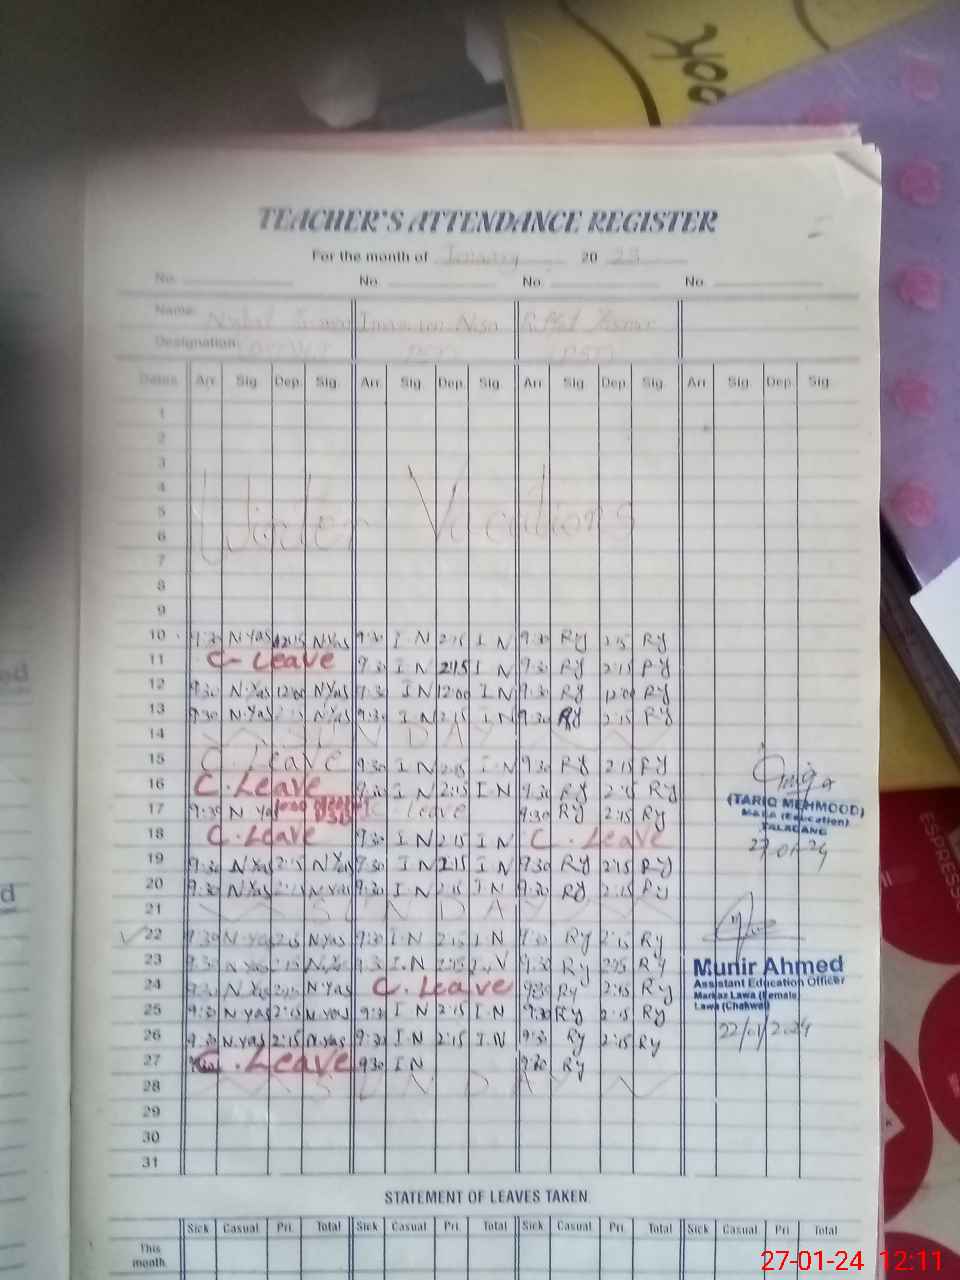 TEACHER'S ATTENDANCE REGISTER
For the month of January 20 23
No. No. No. No.
Name: Imam un Nisa Riffat
Designation:
Dates Arr. Sig. Dep. Sig. Arr. Sig. Dep. Sig. Arr. Sig. Dep. Sig. Arr. Sig. Dep. Sig.
1
2
3
4
Winter Vacations
5
6
7
8
9
10 9:30 N.Yas 2:15 N.Yas 9:30 I N 2:15 I N 9:30 Ry 2:15 Ry
11 C- Leave 9:30 I.N 2:15 I N 9:30 Ry 2:15 Ry
12 9:30 N.Yas 12:00 N.Yas 9:30 I N 12:00 I N 9:30 Ry 12:00 Ry
13 9:30 N.Yas 2:15 N.Yas 9:30 I N 2:15 I N 9:30 Ry 2:15 Ry
14 SUNDAY
15 C. Leave 9:30 I N 2:15 I N 9:30 Ry 2:15 Ry
16 C. Leave 9:30 I N 2:15 I.N 9:30 Ry 2:15 Ry
17 9:30 N Yas C. Leave 9:30 Ry 2:15 Ry
18 C. Leave 9:30 I N 2:15 I N C. Leave
19 9:30 N.Yas 2:15 N.Yas 9:30 I N 2:15 I N 9:30 Ry 2:15 Ry
20 9:30 N.Yas 2:15 N.Yas 9:30 I N 2:15 I N 9:30 Ry 2:15 Ry
21 SUNDAY
22 9:30 N.Yas 2:15 N.Yas 9:30 I.N 2:15 I.N 9:30 Ry 2:15 Ry
23 9:30 N.Yas 2:15 N.Yas 9:30 I.N 2:15 I.N 9:30 Ry 2:15 Ry
24 9:30 N.Yas 2:15 N.Yas C. Leave 9:30 Ry 2:15 Ry
25 9:30 N.Yas 2:15 N.Yas 9:30 I N 2:15 I.N 9:30 Ry 2:15 Ry
26 9:30 N.Yas 2:15 N.Yas 9:30 I.N 2:15 I.N 9:30 Ry 2:15 Ry
27 C. Leave 9:30 I N 9:30 Ry
28 SUNDAY
29
30
31
(TARIQ MEHMOOD)
MA&A (Education)
TALAGANG
27-01-24
Munir Ahmed
Assistant Education Officer
Markaz Lawa (Female)
Lawa (Chakwal)
22/01/2024
STATEMENT OF LEAVES TAKEN
Sick Casual Pri. Total Sick Casual Pri. Total Sick Casual Pri. Total Sick Casual Pri. Total
This
month.
27-01-24 12:11
ESPRESSO